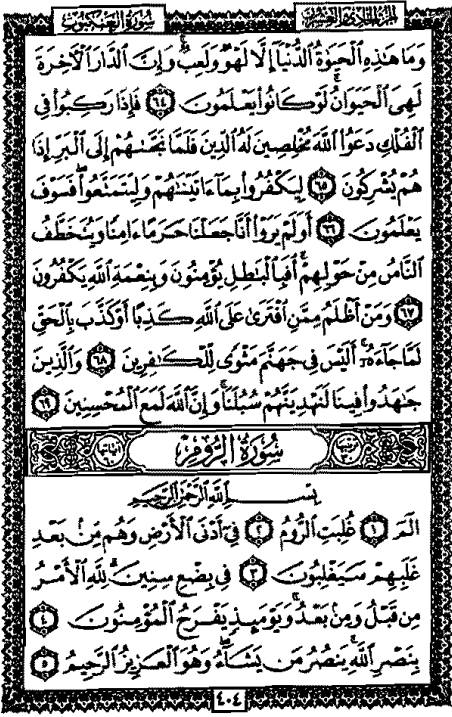 الجزء الحادي والعشرون سورة العنكبوت
وَمَا هَٰذِهِ ٱلْحَيَوٰةُ ٱلدُّنْيَآ إِلَّا لَهْوٌ وَلَعِبٌ ۚ وَإِنَّ ٱلدَّارَ ٱلْأَخِرَةَ
لَهِىَ ٱلْحَيَوَانُ ۚ لَوْ كَانُوا۟ يَعْلَمُونَ ٦٤ فَإِذَا رَكِبُوا۟ فِى
ٱلْفُلْكِ دَعَوُا۟ ٱللَّهَ مُخْلِصِينَ لَهُ ٱلدِّينَ فَلَمَّا نَجَّىٰهُمْ إِلَى ٱلْبَرِّ إِذَا
هُمْ يُشْرِكُونَ ٦٥ لِيَكْفُرُوا۟ بِمَآ ءَاتَيْنَٰهُمْ وَلِيَتَمَتَّعُوا۟ ۖ فَسَوْفَ
يَعْلَمُونَ ٦٦ أَوَلَمْ يَرَوْا۟ أَنَّا جَعَلْنَا حَرَمًا ءَامِنًا وَيُتَخَطَّفُ
ٱلنَّاسُ مِنْ حَوْلِهِمْ ۚ أَفَبِٱلْبَٰطِلِ يُؤْمِنُونَ وَبِنِعْمَةِ ٱللَّهِ يَكْفُرُونَ
٦٧ وَمَنْ أَظْلَمُ مِمَّنِ ٱفْتَرَىٰ عَلَى ٱللَّهِ كَذِبًا أَوْ كَذَّبَ بِٱلْحَقِّ
لَمَّا جَآءَهُۥٓ ۚ أَلَيْسَ فِى جَهَنَّمَ مَثْوًى لِّلْكَٰفِرِينَ ٦٨ وَٱلَّذِينَ
جَٰهَدُوا۟ فِينَا لَنَهْدِيَنَّهُمْ سُبُلَنَا ۚ وَإِنَّ ٱللَّهَ لَمَعَ ٱلْمُحْسِنِينَ ٦٩
ترتيبها ٣٠ سُورَةُ ٱلرُّومِ آياتها ٦٠
بِسْمِ ٱللَّهِ ٱلرَّحْمَٰنِ ٱلرَّحِيمِ
الٓمٓ ١ غُلِبَتِ ٱلرُّومُ ٢ فِىٓ أَدْنَى ٱلْأَرْضِ وَهُم مِّنۢ بَعْدِ
غَلَبِهِمْ سَيَغْلِبُونَ ٣ فِى بِضْعِ سِنِينَ ۗ لِلَّهِ ٱلْأَمْرُ
مِن قَبْلُ وَمِنۢ بَعْدُ ۚ وَيَوْمَئِذٍ يَفْرَحُ ٱلْمُؤْمِنُونَ ٤
بِنَصْرِ ٱللَّهِ ۚ يَنصُرُ مَن يَشَآءُ ۖ وَهُوَ ٱلْعَزِيزُ ٱلرَّحِيمُ ٥
٤٠٤